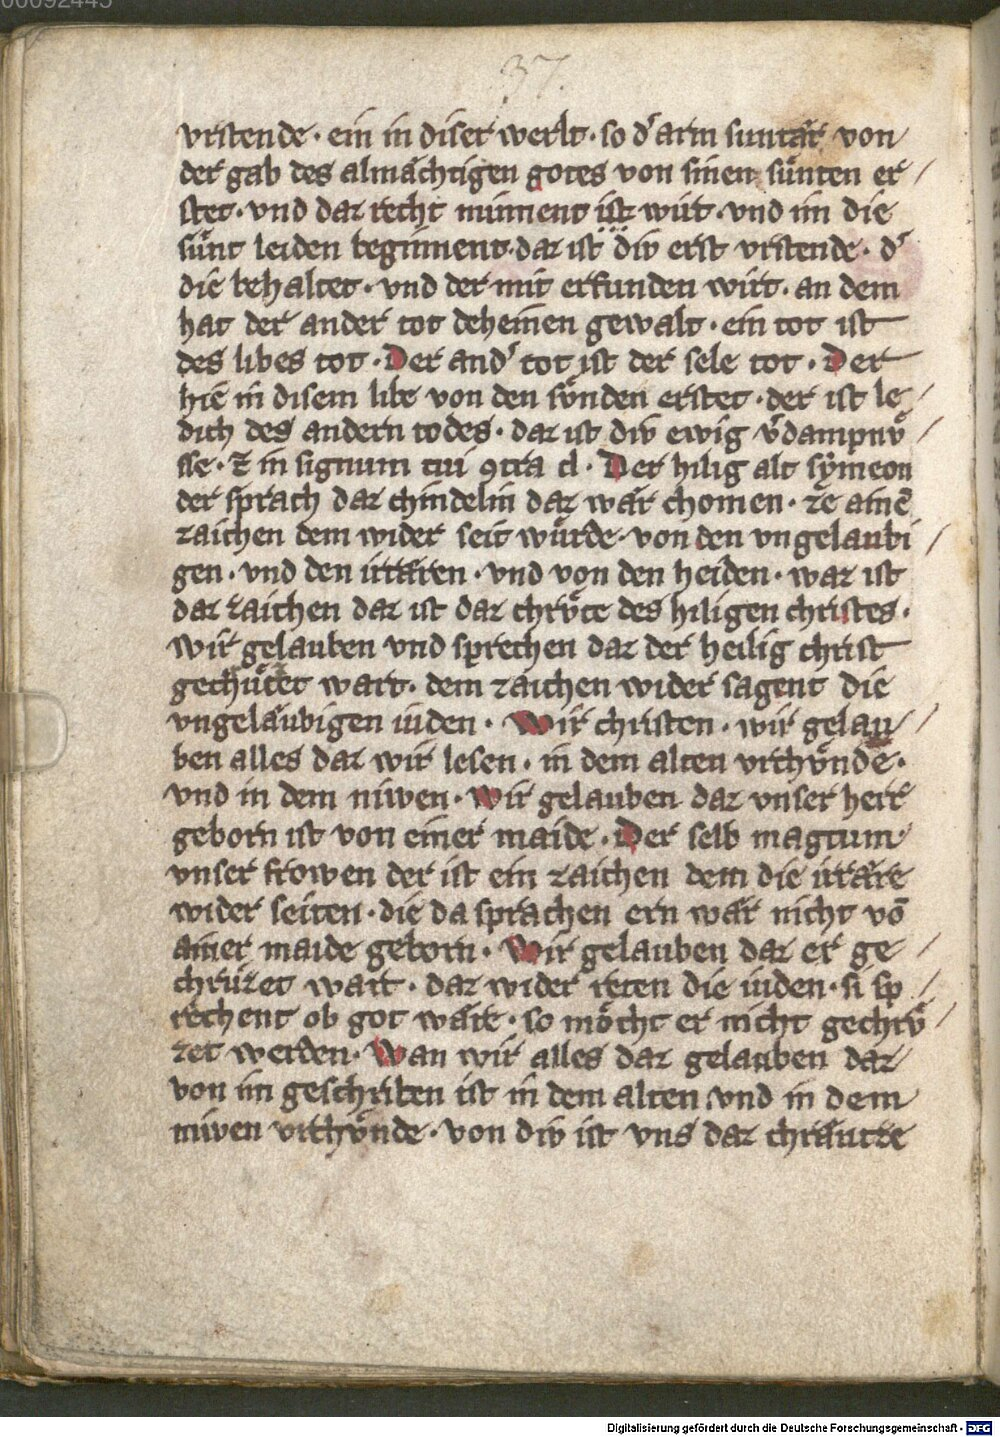 00092445
37.
vrstende · ein in diser werlt · so d͛ arm suntaͤr von
der gab des almaͤchtigen gotes von sinen suͤnten er /
stet · vnd daz recht minnent ist wirt · vnd im die
suͤnt leiden beginnent · daz ist div erst vrstende · d͛
die behaltet · vnd der mit erfunden wirt · an dem
hat der ander tot deheinen gewalt · ein tot ist
des libes tot · Der and͛ tot ist der sele tot · Der
hie in disem libe von den svͤnden erstet · der ist le /
dich des andern todes · daz ist div ewig v͛dampnvͤ /
sse · Et in signum cui ꝯtra d · Der hilig alt symeon
der sprach daz chindelin daz waͤr chomen · ze ainē
zaichen dem wider seit wuͤrde · von den vngelaubi /
gen · vnd den irraͤren · vnd von den heiden · waz ist
daz zaichen daz ist daz chrvͤce des hiligen christes ·
wir gelauben vnd sprechen daz der heilig christ
gechuͤcet wart · dem zaichen wider sagent die
vngelaͤubigen iuden · Wir christen · wir gelau /
ben alles daz wir lesen · in dem alten vrthvͤnde ·
vnd in dem niwen · Wir gelauben daz vnser herr
geborn ist von einer maide · Der selb magtum
vnser frowen der ist ein zaichen dem die irraͤre
wider seiten · die da sprachen ern waͤr nicht vō
ainer maide geborn · Wir gelauben daz er ge /
chruͤzet wart · daz wider reten die iuden · si sp /
rechent ob got waͤre · so moͤcht er nicht gechrvͤ /
zet werden · Wan wir alles daz gelauben daz
von im geschriben ist in dem alten vnd in dem
niwen vrthvͤnde · von div ist vns daz chraͤutze
Digitalisierung gefördert durch die Deutsche Forschungsgemeinschaft - DFG